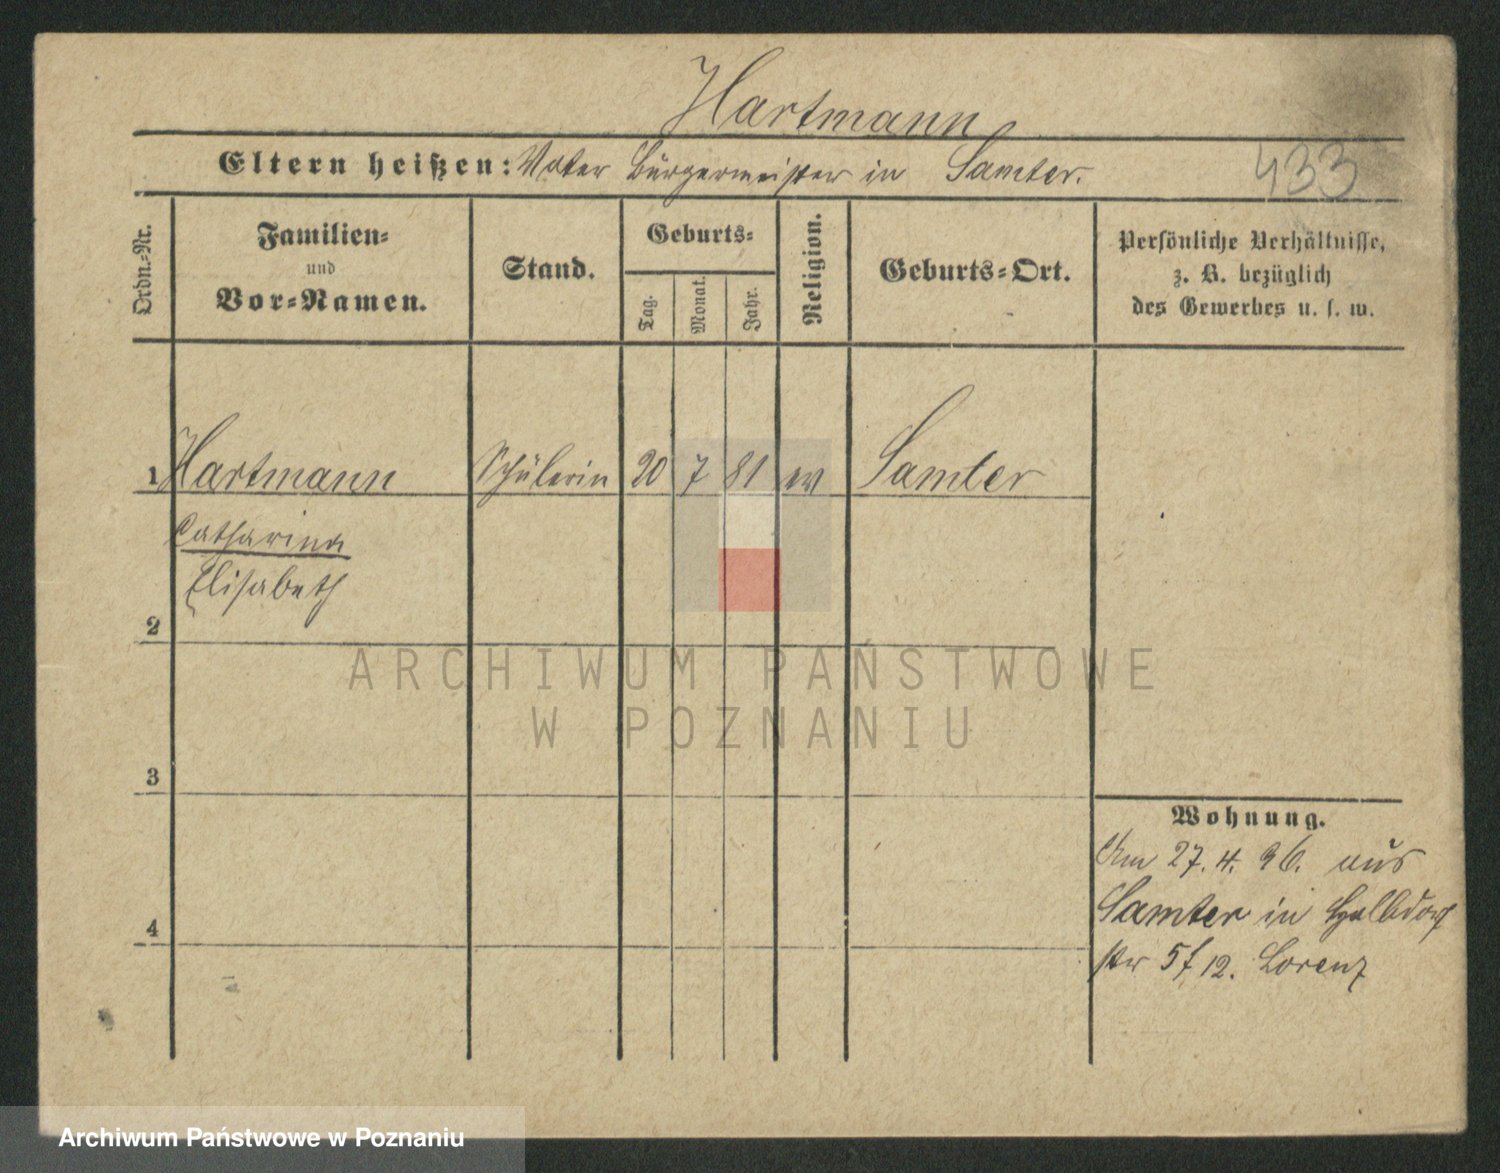 Hartmann
Eltern heißen: Vater Bürgermeister in Samter.
433
Ordn.-Nr.
Familien-
und
Vor-Namen.
Stand.
Geburts-
Tag.
Monat.
Jahr.
Religion.
Geburts-Ort.
Persönliche Verhältnisse,
z. B. bezüglich
des Gewerbes u. s. w.
1 Hartmann Schülerin 20 7 81 ev Samter
Catharina
Elisabeth
2
ARCHIWUM PAŃSTWOWE
W POZNANIU
3
Wohnung.
Am 27. 4. 96. aus
Samter in Halbdorf
str 5 f 12. Lorenz
4
Archiwum Państwowe w Poznaniu